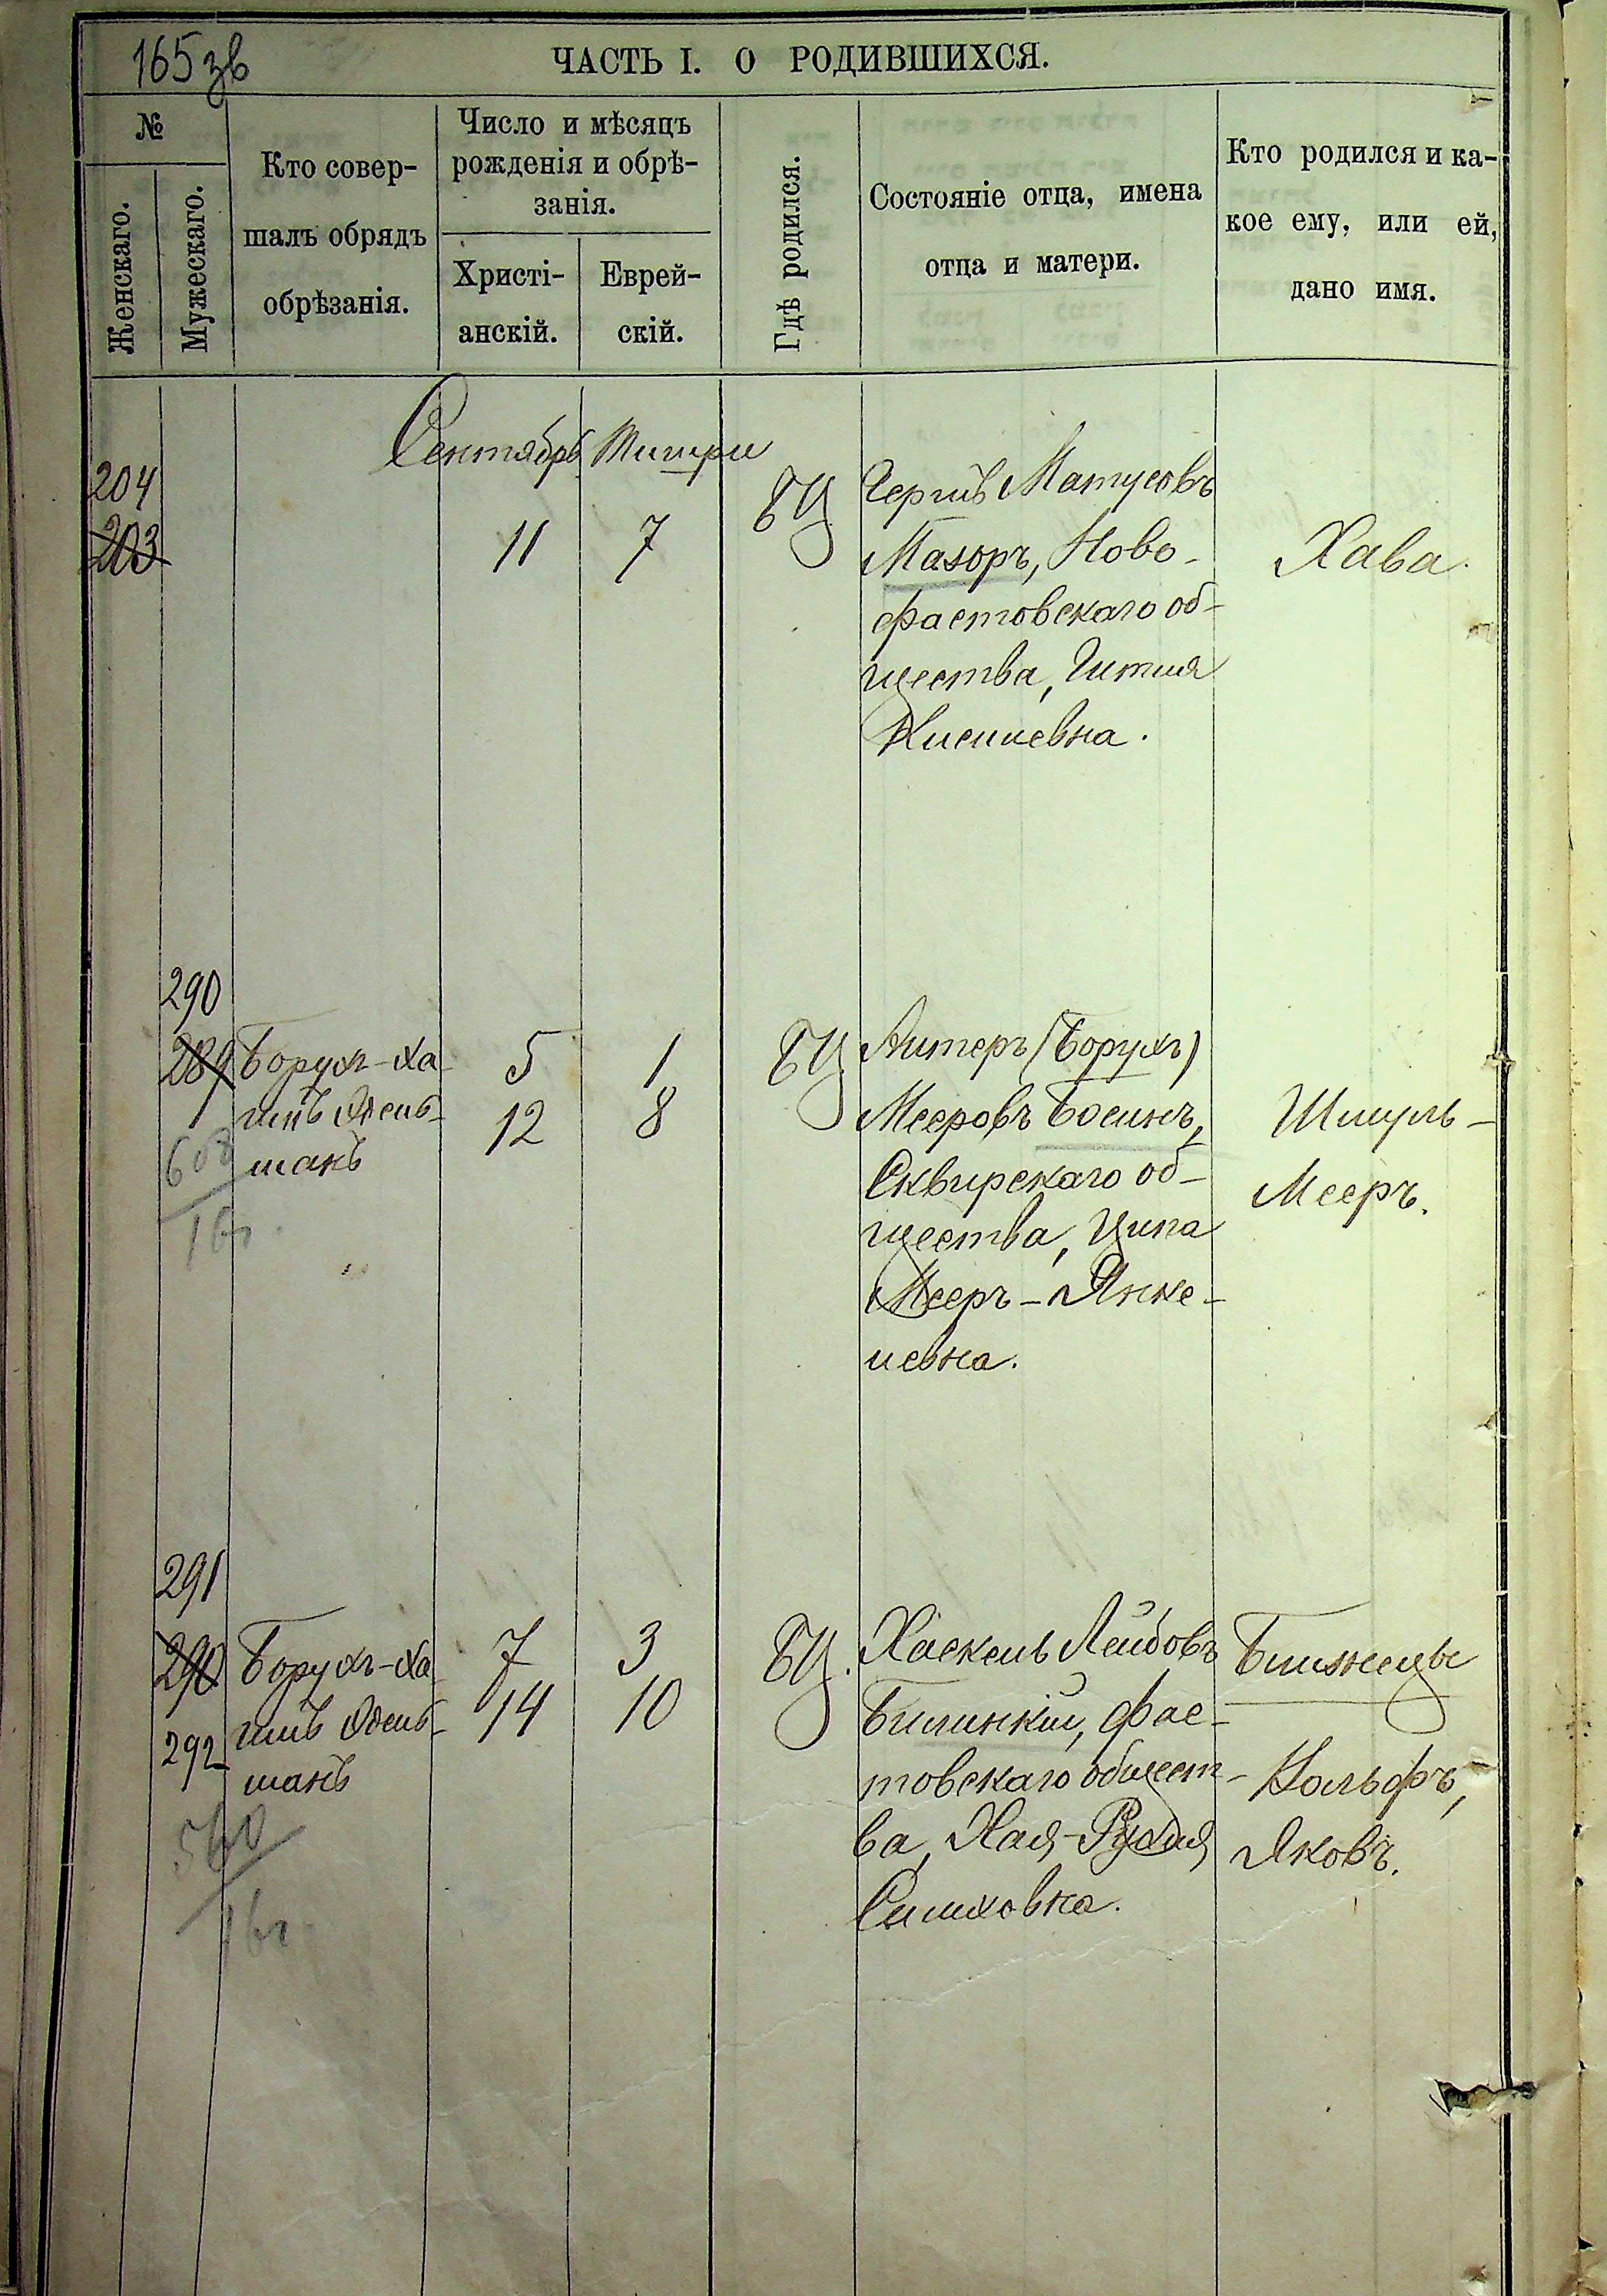 165 зв
ЧАСТЬ I. О РОДИВШИХСЯ.
№
Женскаго.
Мужескаго.
Кто совер-
шалъ обрядъ
обрѣзанія.
Число и мѣсяцъ
рожденія и обрѣ-
занія.
Христі-
анскій.
Еврей-
скій.
Гдѣ родился.
Состояніе отца, имена
отца и матери.
Кто родился и ка-
кое ему, или ей,
дано имя.
Сентябрь Тишри
204
203
11
7
БЦ
Матусовъ
Мазоръ, Ново-
фастовскаго об-
щества, Гитля
Хава.
290
289
Борухъ-Ха
имъ
шанъ
608
5
12
1
8
БЦ.
Алтеръ (Борухъ)
Мееровъ Босинъ,
Сквирскаго об-
щества, Ципа
Мееръ-Янке-
левна.
Шмуль-
Мееръ.
291
290
292
Борухъ-Ха
имъ
шанъ
560
7
14
3
10
БЦ.
Хаскель Лейбовъ
Билинкій, Фас-
товскаго общест-
ва, Хая-Рухля
Симховна.
Близнецы
Вольфъ,
Яковъ.